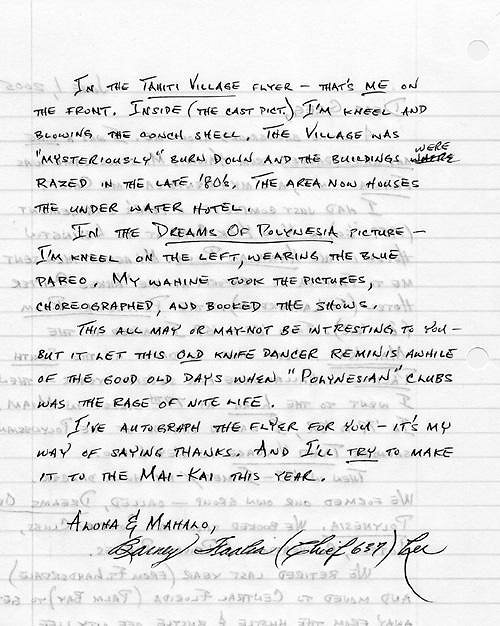 IN THE TAHITI VILLAGE FLYER – THAT'S ME ON
THE FRONT. INSIDE (THE CAST PICT.) I'M KNEEL AND
BLOWING THE CONCH SHELL. THE VILLAGE WAS
"MYSTERIOUSLY" BURN DOWN AND THE BUILDINGS WERE
RAZED IN THE LATE '80's. THE AREA NOW HOUSES
THE UNDER WATER HOTEL.
IN THE DREAMS OF POLYNESIA PICTURE –
I'M KNEEL ON THE LEFT, WEARING THE BLUE
PAREO. MY WAHINE TOOK THE PICTURES,
CHOREOGRAPHED, AND BOOKED THE SHOWS.
THIS ALL MAY OR MAY-NOT BE INTRESTING TO YOU –
BUT IT LET THIS OLD KNIFE DANCER REMINIS AWHILE
OF THE GOOD OLD DAYS WHEN "POLYNESIAN" CLUBS
WAS THE RAGE OF NITE LIFE.
I'VE AUTOGRAPH THE FLYER FOR YOU – IT'S MY
WAY OF SAYING THANKS. AND I'LL TRY TO MAKE
IT TO THE MAI-KAI THIS YEAR.
ALOHA & MAHALO,
Barney (Chief 637) Lee